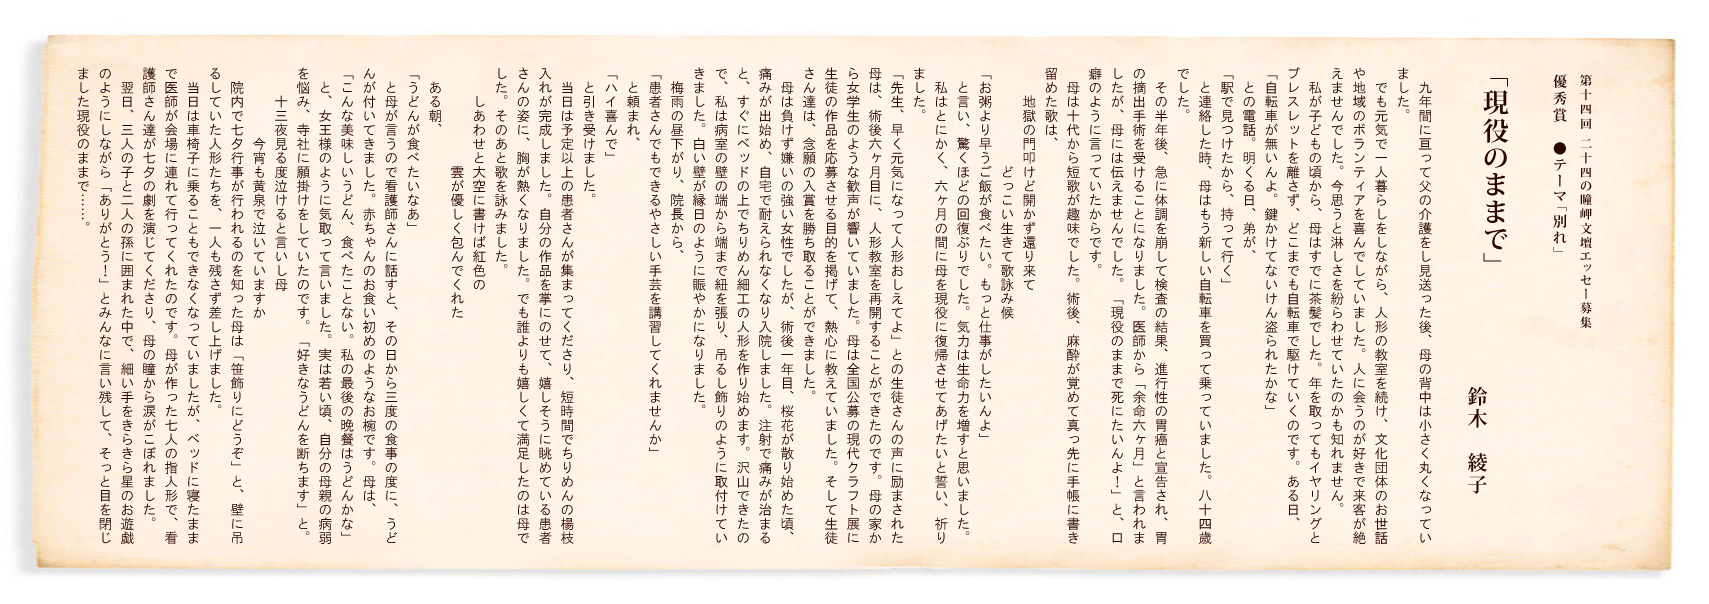 第十四回 二十四の瞳岬文壇エッセー募集
優秀賞 ●テーマ「別れ」
「現役のままで」
鈴木 綾子
九年間に亘って父の介護をし見送った後、母の背中は小さく丸くなってい
ました。
でも元気で一人暮らしをしながら、人形の教室を続け、文化団体のお世話
や地域のボランティアを喜んでしていました。人に会うのが好きで来客が絶
えませんでした。今思うと淋しさを紛らわせていたのかも知れません。
私が子どもの頃から、母はすでに茶髪でした。年を取ってもイヤリングと
ブレスレットを離さず、どこまでも自転車で駆けていくのです。ある日、
「自転車が無いんよ。鍵かけてないけん盗られたかな」
との電話。明くる日、弟が、
「駅で見つけたから、持って行く」
と連絡した時、母はもう新しい自転車を買って乗っていました。八十四歳
でした。
その半年後、急に体調を崩して検査の結果、進行性の胃癌と宣告され、胃
の摘出手術を受けることになりました。医師から「余命六ヶ月」と言われま
したが、母には伝えませんでした。「現役のままで死にたいんよ!」と、口
癖のように言っていたからです。
母は十代から短歌が趣味でした。術後、麻酔が覚めて真っ先に手帳に書き
留めた歌は、
地獄の門叩けど開かず還り来て
どっこい生きて歌詠み候
「お粥より早うご飯が食べたい。もっと仕事がしたいんよ」
と言い、驚くほどの回復ぶりでした。気力は生命力を増すと思いました。
私はとにかく、六ヶ月の間に母を現役に復帰させてあげたいと誓い、祈り
ました。
「先生、早く元気になって人形おしえてよ」との生徒さんの声に励まされた
母は、術後六ヶ月目に、人形教室を再開することができたのです。母の家か
ら女学生のような歓声が響いていました。母は全国公募の現代クラフト展に
生徒の作品を応募させる目的を掲げて、熱心に教えていました。そして生徒
さん達は、念願の入賞を勝ち取ることができました。
母は負けず嫌いの強い女性でしたが、術後一年目、桜花が散り始めた頃、
痛みが出始め、自宅で耐えられなくなり入院しました。注射で痛みが治まる
と、すぐにベッドの上でちりめん細工の人形を作り始めます。沢山できたの
で、私は病室の壁の端から端まで紐を張り、吊るし飾りのように取付けてい
きました。白い壁が縁日のように賑やかになりました。
梅雨の昼下がり、院長から、
「患者さんでもできるやさしい手芸を講習してくれませんか」
と頼まれ、
「ハイ喜んで」
と引き受けました。
当日は予定以上の患者さんが集まってくださり、短時間でちりめんの楊枝
入れが完成しました。自分の作品を掌にのせて、嬉しそうに眺めている患者
さんの姿に、胸が熱くなりました。でも誰よりも嬉しくて満足したのは母で
した。そのあと歌を詠みました。
しあわせと大空に書けば紅色の
雲が優しく包んでくれた
ある朝、
「うどんが食べたいなあ」
と母が言うので看護師さんに話すと、その日から三度の食事の度に、うど
んが付いてきました。赤ちゃんのお食い初めのようなお椀です。母は、
「こんな美味しいうどん、食べたことない。私の最後の晩餐はうどんかな」
と、女王様のように気取って言いました。実は若い頃、自分の母親の病弱
を悩み、寺社に願掛けをしていたのです。「好きなうどんを断ちます」と。
十三夜見る度泣けると言いし母
今宵も黄泉で泣いていますか
院内で七夕行事が行われるのを知った母は「笹飾りにどうぞ」と、壁に吊
るしていた人形たちを、一人も残さず差し上げました。
当日は車椅子に乗ることもできなくなっていましたが、ベッドに寝たまま
で医師が会場に連れて行ってくれたのです。母が作った七人の指人形で、看
護師さん達が七夕の劇を演じてくださり、母の瞳から涙がこぼれました。
翌日、三人の子と二人の孫に囲まれた中で、細い手をきらきら星のお遊戯
のようにしながら「ありがとう!」とみんなに言い残して、そっと目を閉じ
ました現役のままで……。